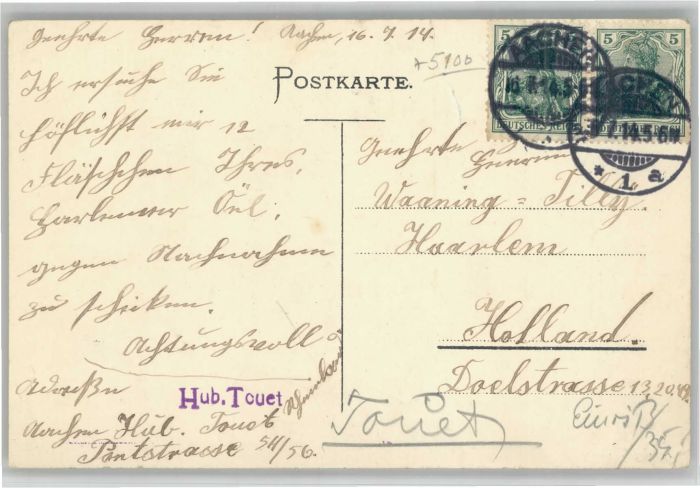 Geehrte Herren! Aachen, 16.7.14.
Ich ersuche Sie
höflichst mir 12
Fläschchen Ihres,
Harlemer Oel,
gegen Nachnahme
zu schicken.
Achtungsvoll
Adresse
Hub. Touet
Aachen Hub. Touet
Pontstrasse 54/56.
5100
POSTKARTE.
5
5
DEUTSCHES REICH
AACHEN
AACHEN
* 1 a
Geehrte Herren
Waaning = Tilly.
Haarlem
Holland.
Doelstrasse 13,20.
Touet